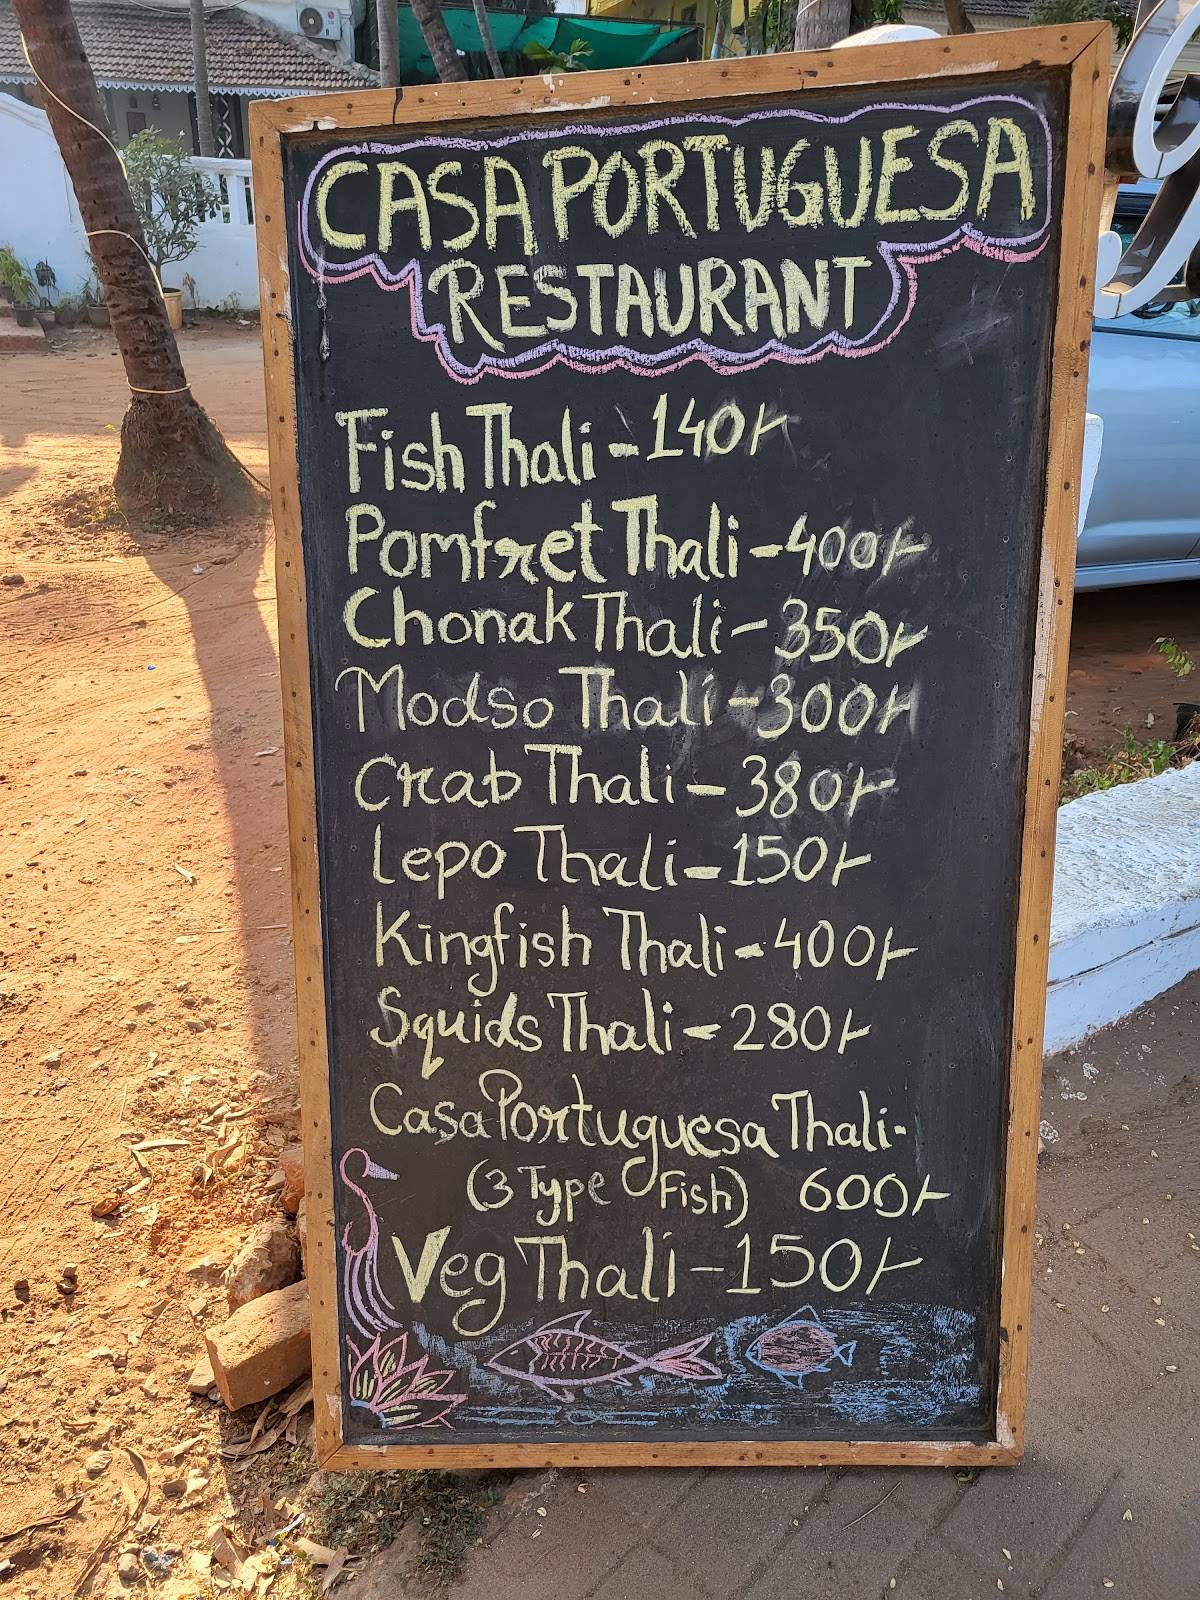 CASA PORTUGUESA
RESTAURANT
Fish Thali - 140/-
Pomfret Thali - 400/-
Chonak Thali - 350/-
Modso Thali - 300/-
Crab Thali - 380/-
Lepo Thali - 150/-
Kingfish Thali - 400/-
Squids Thali - 280/-
Casa Portuguesa Thali -
(3 Type Fish) 600/-
Veg Thali - 150/-